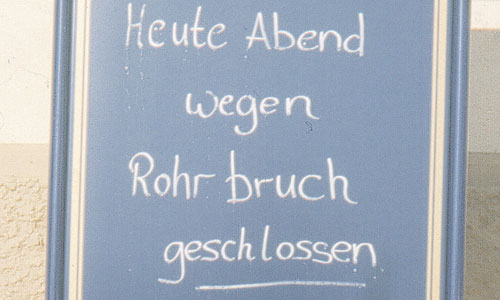 Heute Abend
wegen
Rohrbruch
geschlossen